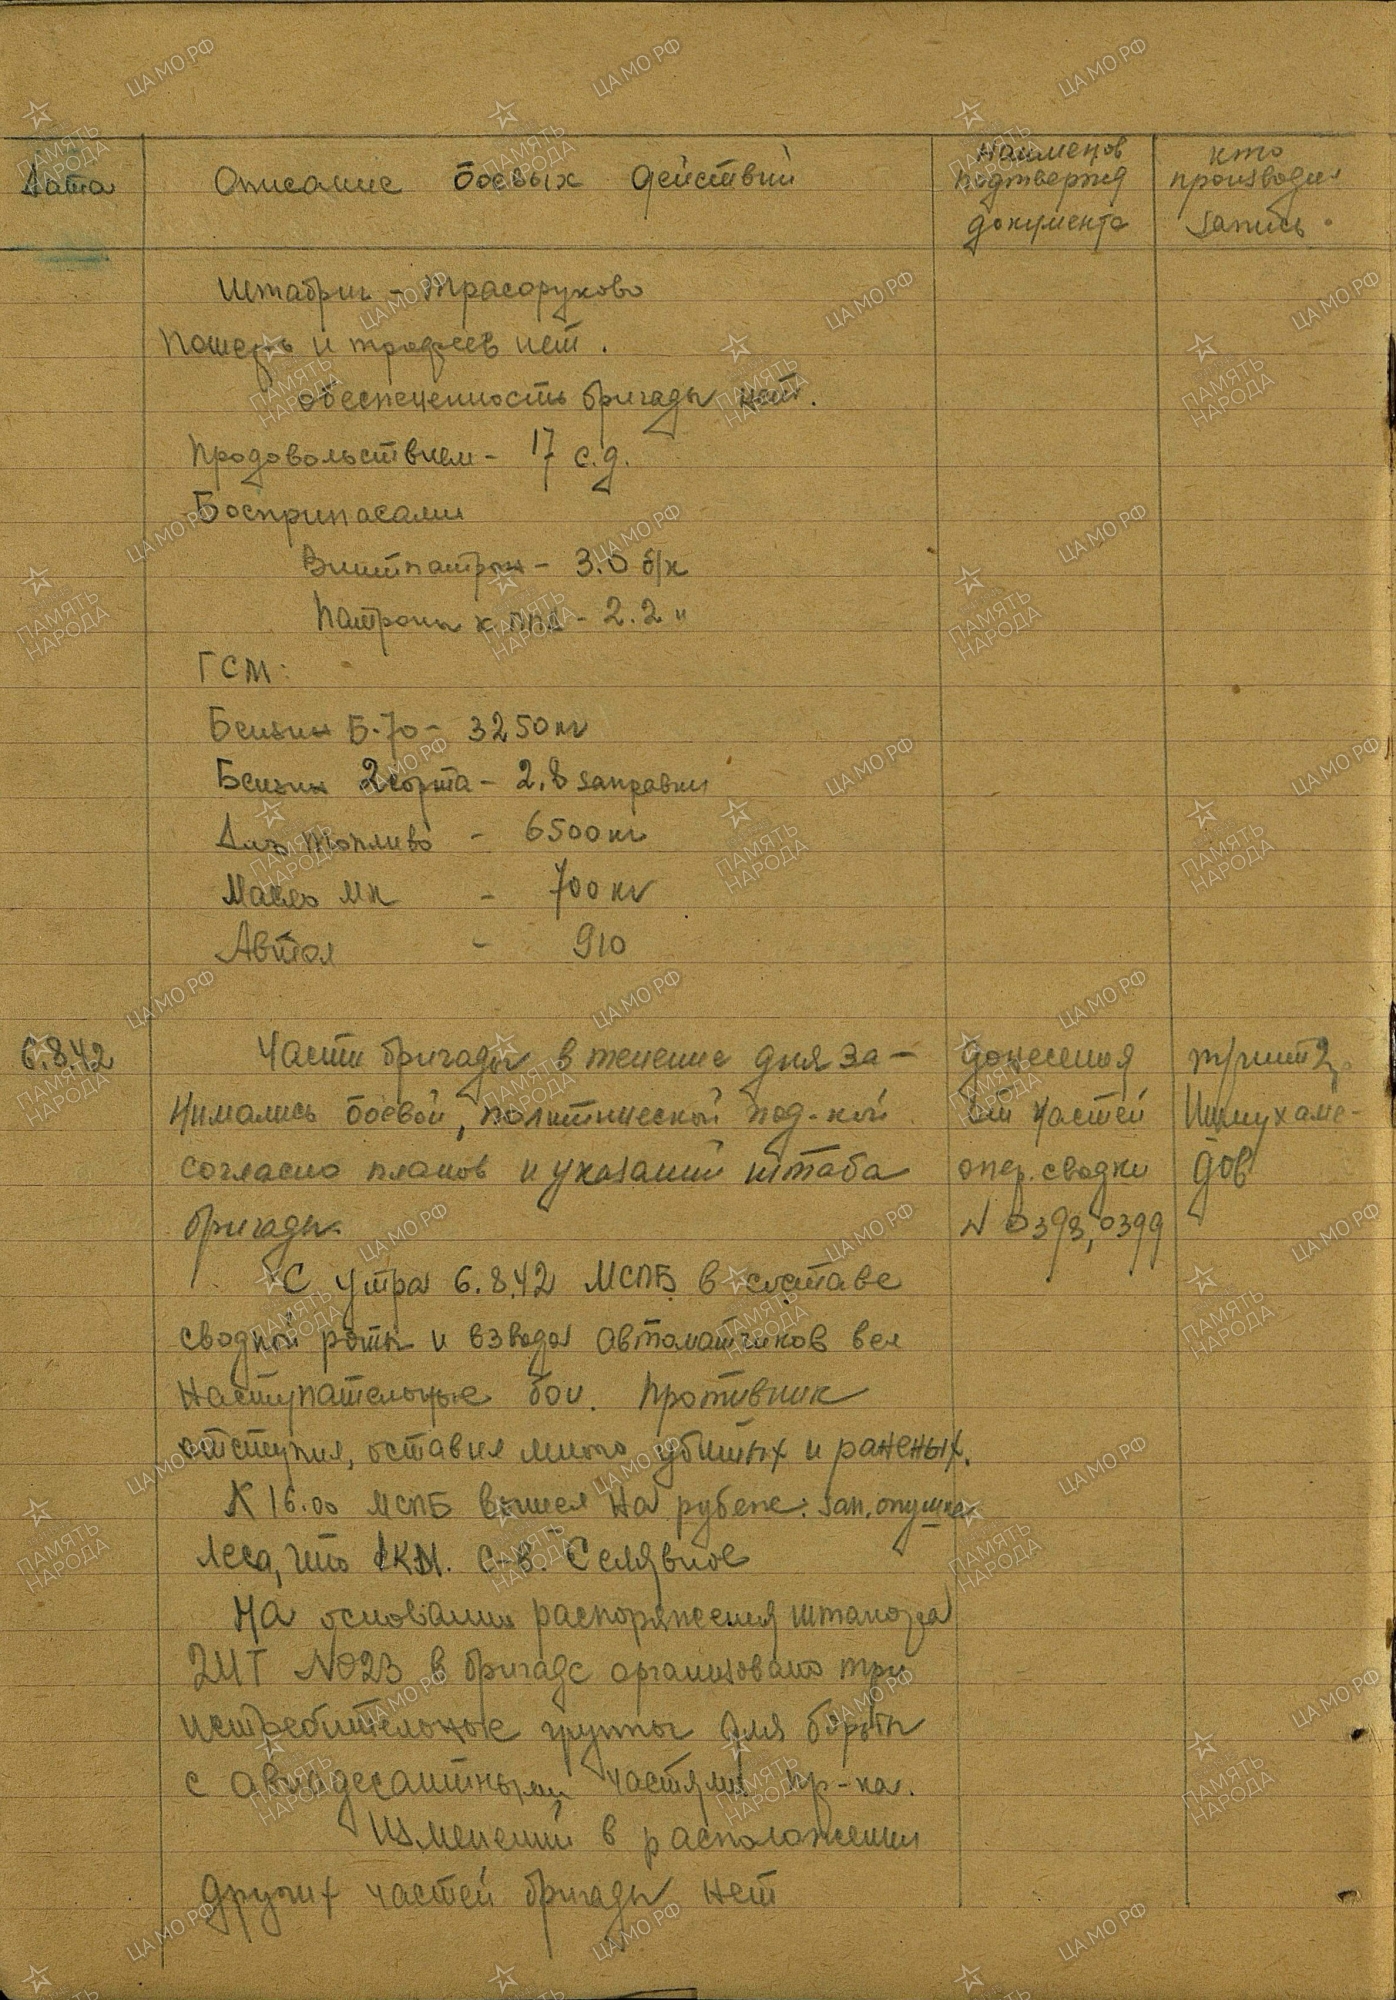 Дата
Описание боевых действий
наименов
подтвержд
документа
кто
производил
запись.
Штабриг - Трасоруково
Потерь и трофеев нет.
обеспеченность бригады нет.
Продовольствием - 17 с.д.
Боеприпасами
Винтпатрон - 3.0 б/к
Патроны к ППД - 2.2 "
ГСМ:
Бензин Б-70 - 3250 кг
Бензин 2 сорта - 2.8 заправки
Диз топливо - 6500 кг
Масло МК - 700 кг
Автол - 910
6.8.42
Части бригады в течение дня за-
нимались боевой, политической под-кой
согласно планов и указаний штаба
бригады.
С утра 6.8.42 МСПБ в составе
сводной роты и взвода автоматчиков вел
наступательные бои. Противник
отступил, оставил много убитых и раненых.
К 16.00 МСПБ вышел на рубеж: зап. опушка
леса, что 1 км. с-в. Селявное
На основании распоряжения штакора
2 ИТ №023 в бригаде организовано три
истребительные группы для борьбы
с авиадесантными частями пр-ка.
Изменений в расположении
других частей бригады нет
донесения
от частей
опер. сводки
№ 0398, 0399
Ишмухаме-
дов
ЦА МО РФ
ПАМЯТЬ
НАРОДА